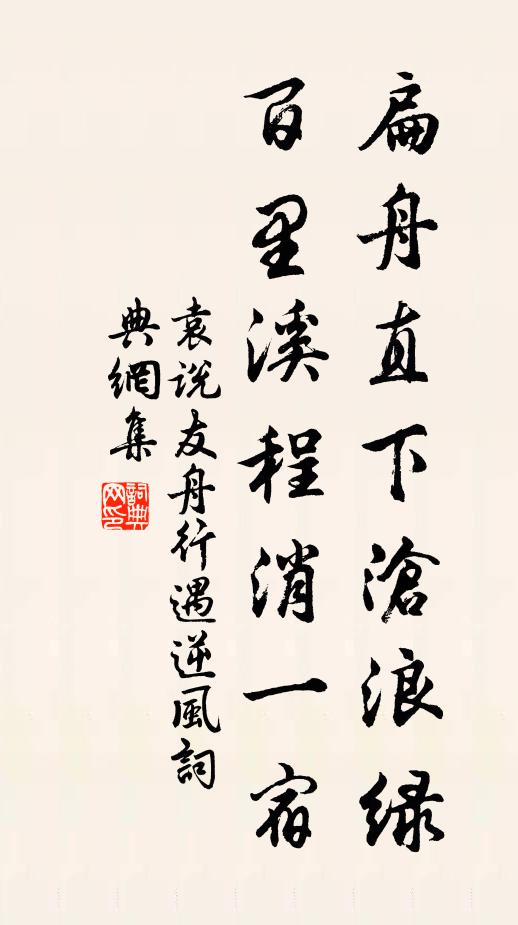 扁舟直下滄浪綠
百里溪程消一宿
袁說友舟行遇逆風詞
典網集
詞典網印